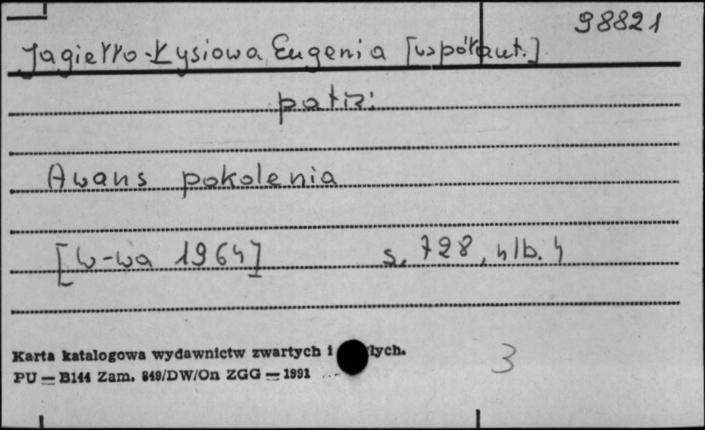 98821
Jagiełło-Łysiowa, Eugenia [współaut.]
patrz:
Awans pokolenia
[W-wa 1964] s. 728, nlb. 4
Karta katalogowa wydawnictw zwartych i łych.
PU — B144 Zam. 849/DW/On ZGG — 1991
3